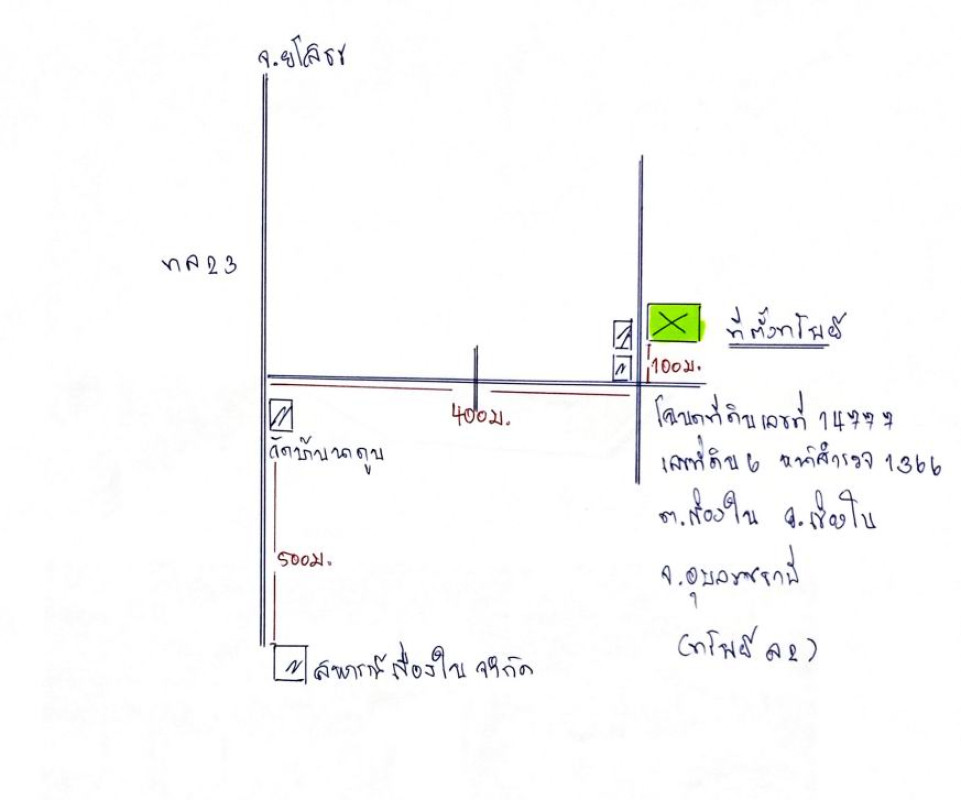 จ.ยโสธร
ทล 23
ที่ตั้งทรัพย์
100ม.
400ม.
โฉนดที่ดินเลขที่ 14777
วัดบ้านนาดูน
เลขที่ดิน 6 หน้าสำรวจ 1366
ต.เขื่องใน อ.เขื่องใน
500ม.
จ.อุบลราชธานี
(ทรัพย์ ล2)
สหกรณ์เขื่องใน จำกัด